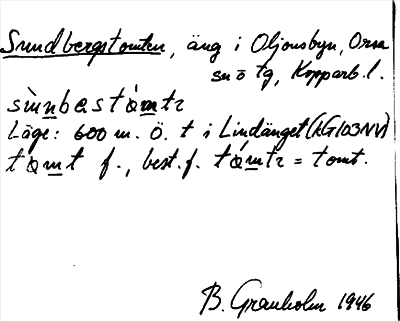 Sundbergstomten, äng i Oljonsbyn, Orsa
sn o tg, Kopparb. l.
sùnbastàmtr
Läge: 600 m. Ö. t i Lindänget (kG103NV)
tàmt f., best. f. tàmtr = tomt.
B. Granholm 1946